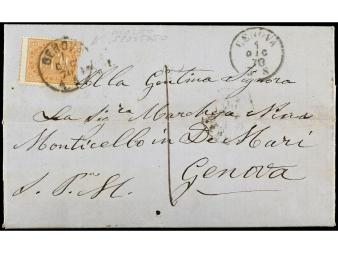 GENOVA
GENOVA
1
DIC
70
5 S
Alla Gentma Signora
La Sig.ra Marchesa Nina
Monticello in De Mari
Genova
S. P.M.
1